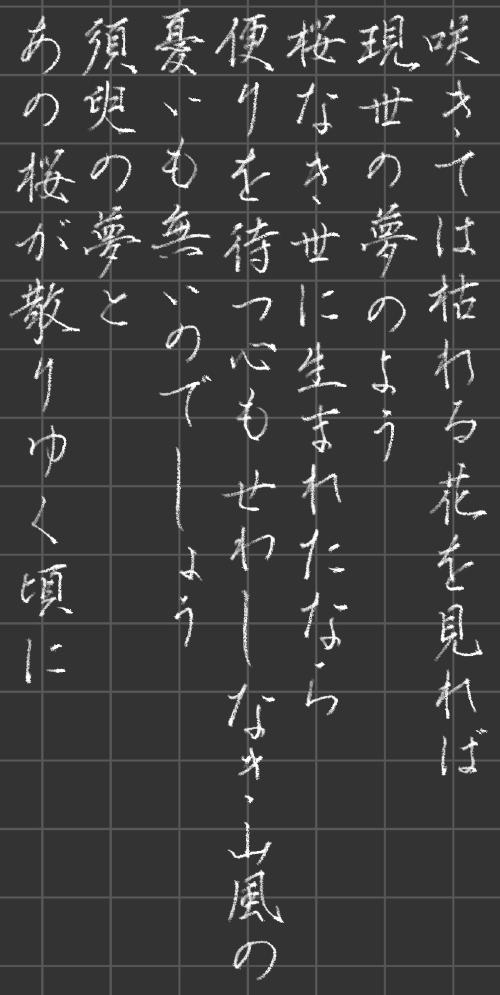 咲きては枯れる花を見れば
現世の夢のよう
桜なき世に生まれたなら
便りを待つ心もせわしなき山風の
憂いも無いのでしょう
須臾の夢と
あの桜が散りゆく頃に